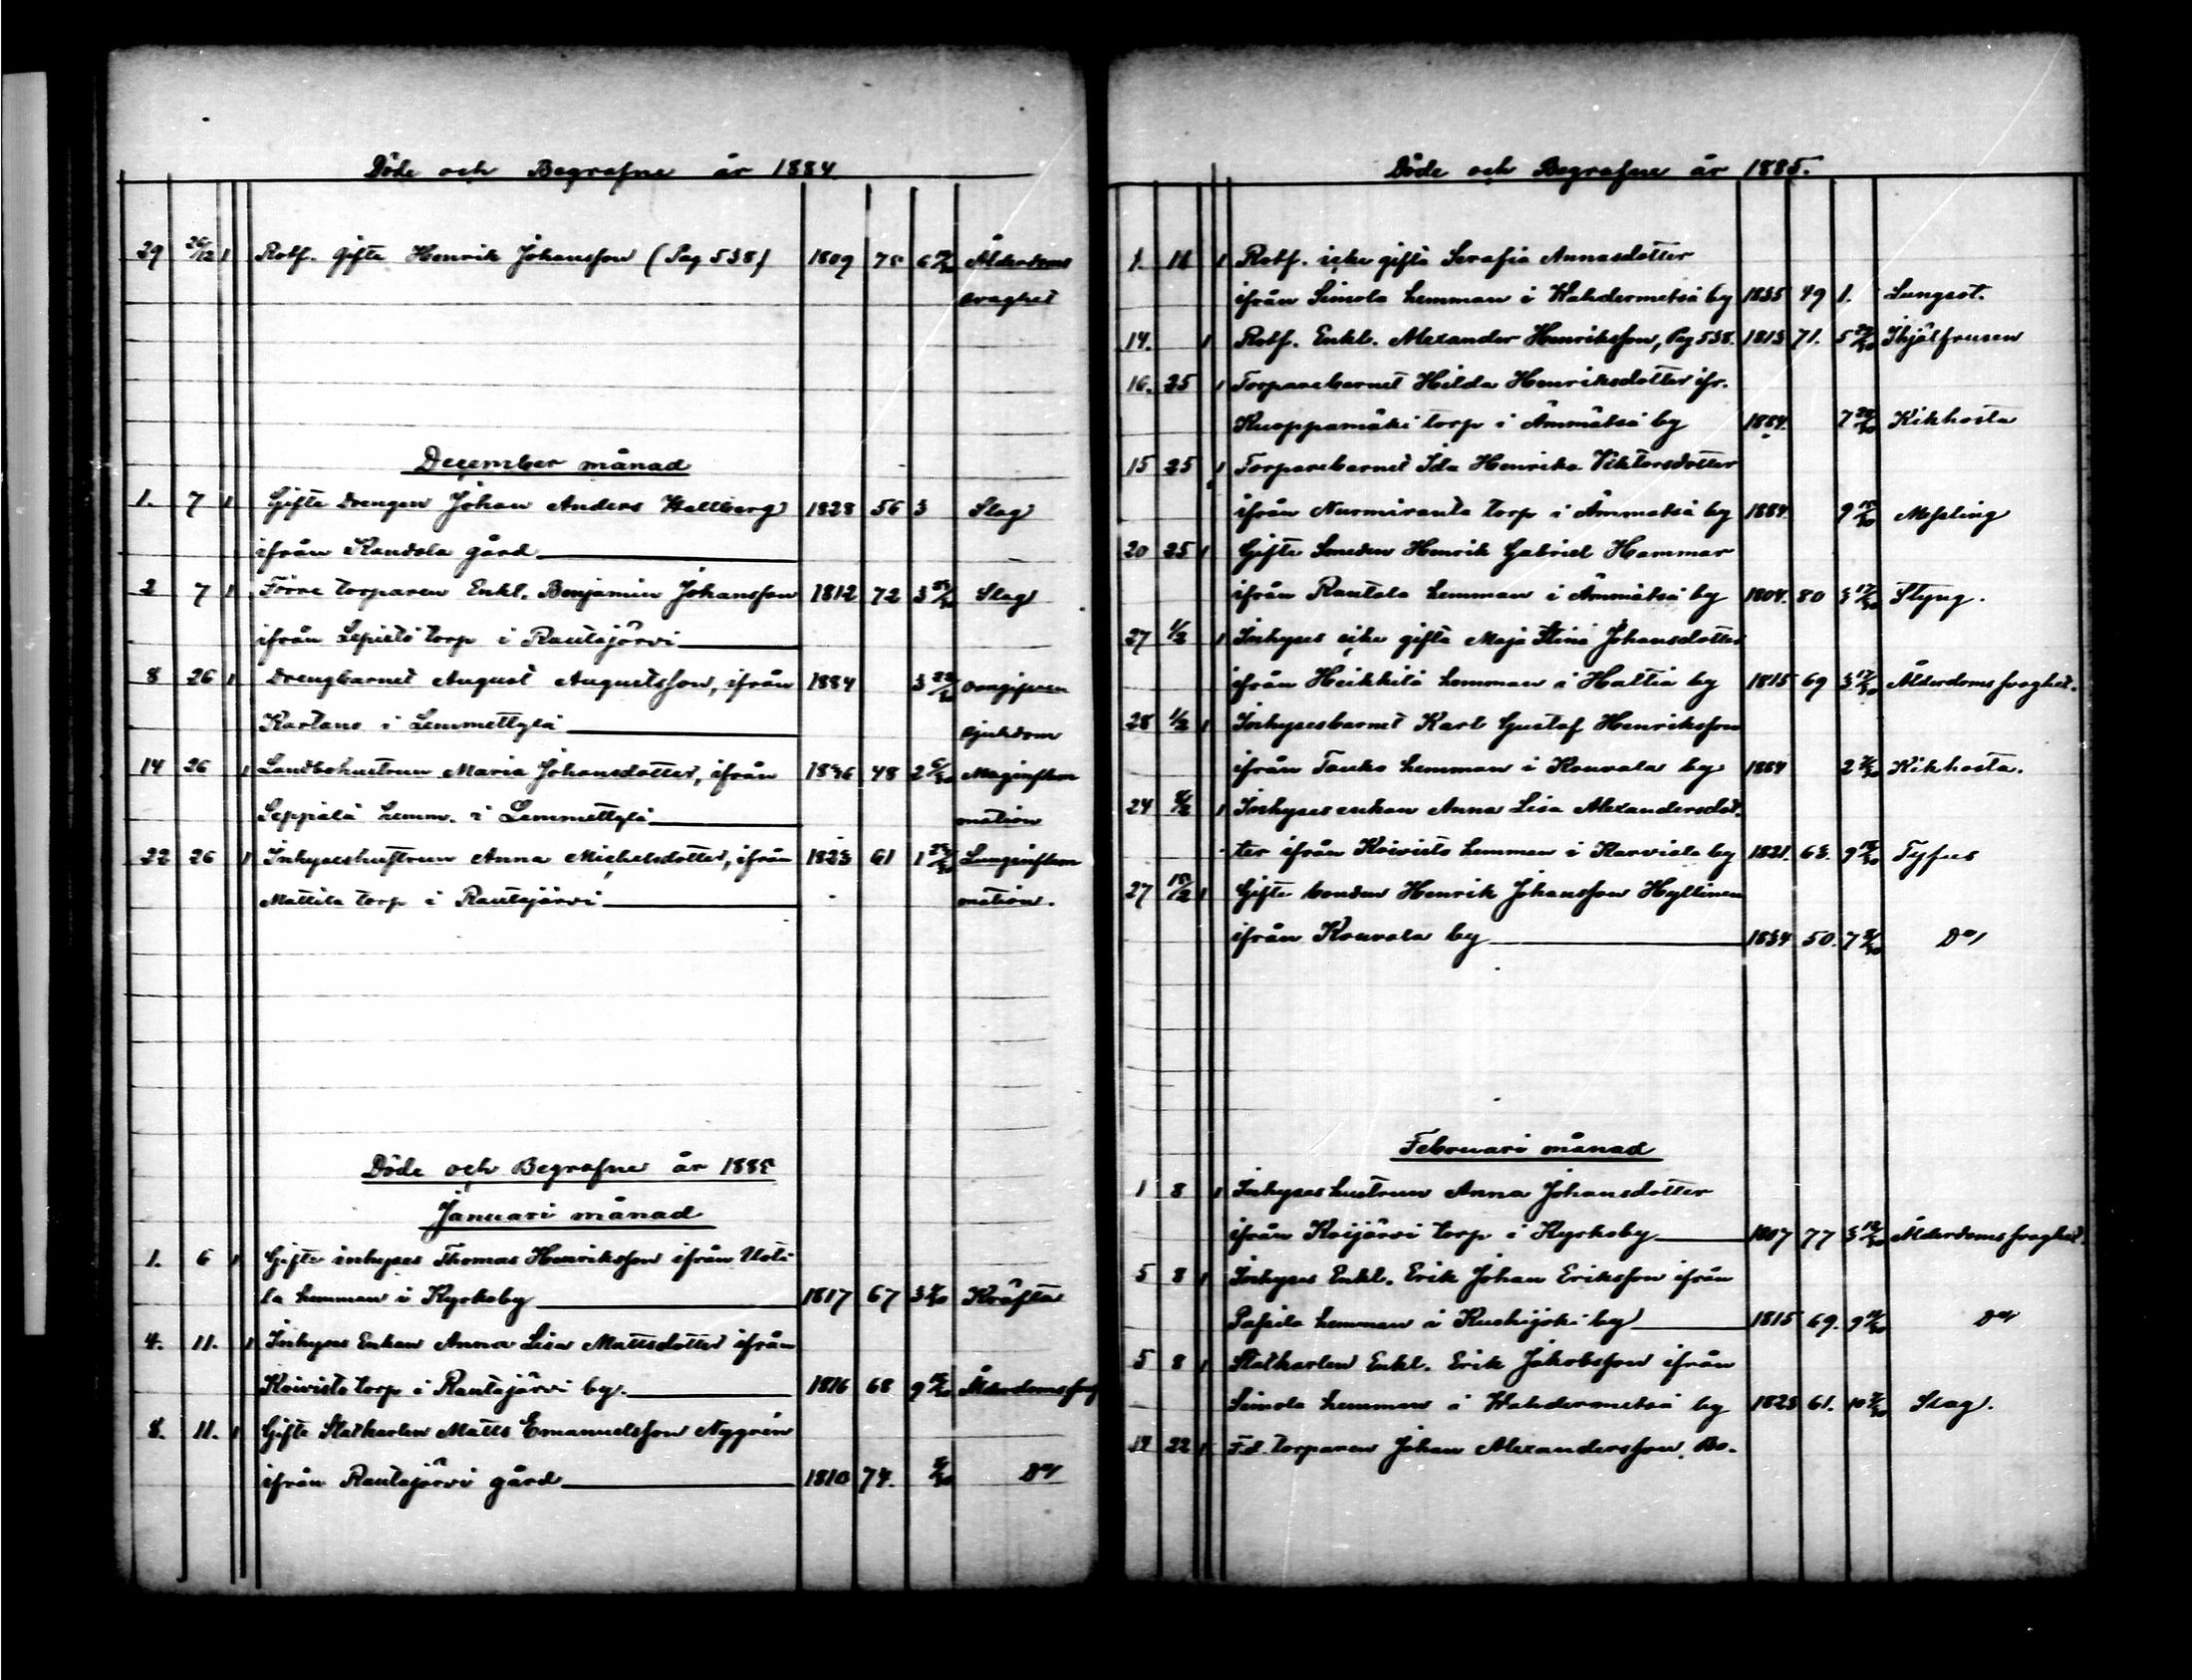 Döde och Begrafne år 1884
29 26/12 1 Rotf. gifte Henrik Johansson (Pag 538) 1809 75 Ålderdoms
svaghet
December månad
1. 7 1 Gifte Drengen Johan Anders Hallberg 1828 56 3 Slag
ifrån Kandola gård
2 7 1 Förre torparen Enkl. Benjamin Johansson 1812 72 3 Slag
ifrån Lepistö torp i Rautajärvi
8 26 1 Drengbarnet August Augustsson, ifrån 1884 3 oangifven
Kartano i Lemmettylä sjukdom
14 26 1 Landbohustrun Maria Johansdotter, ifrån 1836 48 2 Maginflam
Seppälä hemm. i Lemmettylä mation
22 26 1 Inhyseshustrun Anna Michelsdotter, ifrån 1823 61 1 Lunginflam
Mattila torp i Rautajärvi mation.
Döde och Begrafne år 1885
Januari månad
1. 6 1 Gifte inhyses Thomas Henriksson ifrån Uoti-
la hemman i Kyrkoby 1817 67 3 Kräfta
4. 11. 1 Inhyses Enkan Anna Lisa Mattsdotter ifrån
Koivisto torp i Rautajärvi by. 1816 68 9 Ålderdomssvag
8. 11. 1 Gifte Statkarlen Matts Emanuelsson Nygrén
ifrån Rautajärvi gård 1810 74. Do/
Döde och Begrafne år 1885.
1. 11 1 Rotf. icke gifta Serafia Annasdotter
ifrån Simola hemman i Wahdermetsä by 1835 49 1. Lungsot.
14. 1 Rotf. Enkl. Alexander Henriksson, Pag 538. 1813 71. 5 Ihjälfrusen
16. 25 1 Torparebarnet Hilda Henriksdotter ifr.
Kuoppamäki torp i Ämmätsä by 1884. 7 Kikhosta
15 25 1 Torparebarnet Ida Henrika Viktorsdotter
ifrån Nurmiranta torp i Ämmätsä by 1884 9 Messling
20 25 1 Gifte Smeden Henrik Gabriel Hammar
ifrån Rautala hemman i Ämmätsä by 1804. 80 3 Styng.
27 1/2 1 Inhyses icke gifta Maja Stina Johansdotter
ifrån Heikkilä hemman i Haltia by 1815 69 3 Ålderdomssvaghet.
28 1/2 1 Inhysesbarnet Karl Gustaf Henriksson
ifrån Tauko hemman i Kouvala by 1884 2 Kikhosta.
24 1 Inhysesenkan Anna Lisa Alexandersdot-
ter ifrån Koivisto hemman i Karviala by 1821. 63. 9 Tyfus
27 15/2 1 Gifte bonden Henrik Johansson Hyttinen
ifrån Kouvala by 1834 50. 7 Do/
Februari månad
1 8 1 Inhyseshustrun Anna Johansdotter
ifrån Koijärvi torp i Kyrkoby 1807 77 3 Ålderdomssvaghet.
5 8 1 Inhyses Enkl. Erik Johan Eriksson ifrån
Papila hemman i Kuohijoki by 1815 69. 9 Do/
5 8 1 Statkarlen Enkl. Erik Jakobsson ifrån
Simola hemman i Wahdermetsä by 1823 61. 10 Slag.
14 22 1 F.d. torparen Johan Alexandersson Bo-